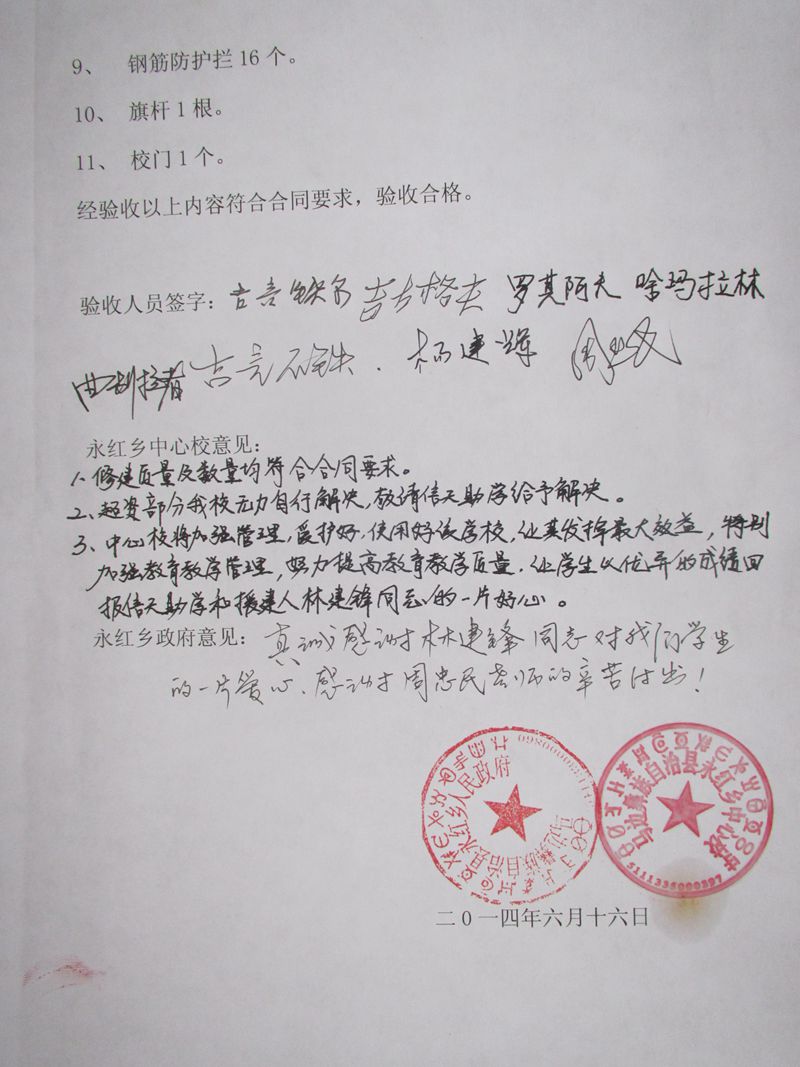 9、 钢筋防护拦 16 个。
10、 旗杆 1 根。
11、 校门 1 个。
经验收以上内容符合合同要求，验收合格。
验收人员签字： 吉克格夫 罗其阿夫 哈玛拉林
杨建辉
永红乡中心校意见：
1、修建质量及数量均符合合同要求。
2、超资部分我校无力自行解决，敬请信天助学给予解决。
3、中心校将加强管理，爱护好，使用好该学校，让其发挥最大效益，特别
加强教育教学管理，努力提高教育教学质量，让学生以优异的成绩回
报信天助学和援建人林建锋同志的一片好心。
永红乡政府意见： 真诚感谢林建锋同志对我们学生
的一片爱心、感谢周忠民老师的辛苦付出！
马边彝族自治县永红乡人民政府
马边彝族自治县永红乡中心校
5111336000397
二〇一四年六月十六日